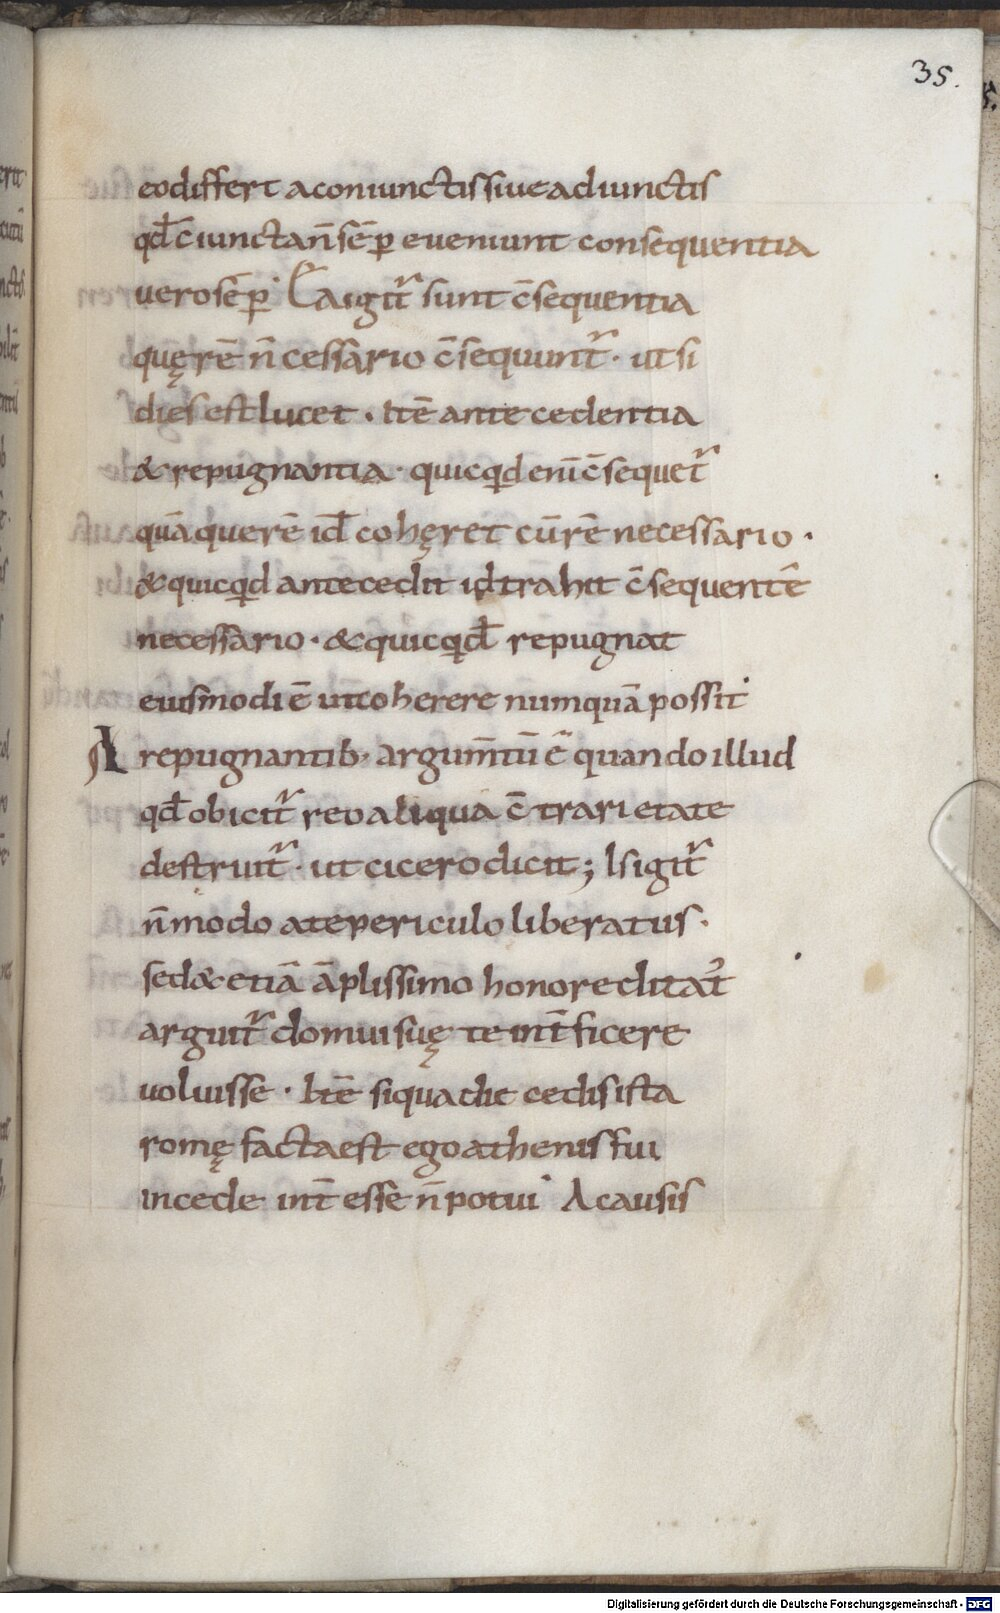 35.
eo differt a coniunctis sive adiunctis
qđ c̄iuncta n̄ sēp eveniunt consequentia
vero sēp. Ea igit̃ sunt c̄sequentia
quę rē n̄cessario c̄sequunt̃. ut si
dies est lucet. Itē antecedentia
& repugnantia. quicqđ eni c̄sequet̃
quā querē iđ cohęret cū rē necessario.
& quicqđ antecedit id trahit c̄sequentē
necessario. & quicqđ repugnat
eiusmodi ē ut coherere numquā possit
A repugnantib; argum̄tū ē quando illud
qđ obicit̃ reo aliqua c̄trarietate
destruit̃. ut cicero dicit; Is igit̃
n̄ modo a te periculo liberatus.
sed & etiā āplissimo honore ditat᷒
arguit̃ domui suę te int̄ficere
voluisse. Itē si qua dic̄ cedis ista
romę facta est ego athenis fui
in cede int̄esse n̄ potui. A causis
Digitalisierung gefördert durch die Deutsche Forschungsgemeinschaft - DFG